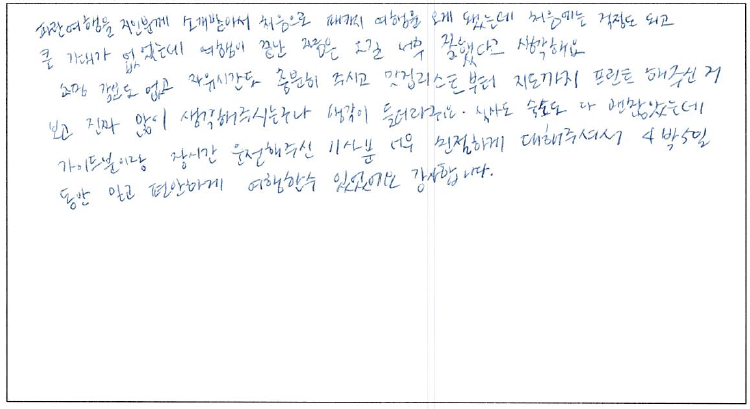 파란여행을 지인분께 소개받아서 처음으로 패키지 여행을 오게 됐는데 처음에는 걱정도 되고
큰 기대가 없었는데 여행이 끝난 지금은 오길 너무 잘했다고 생각해요
쇼핑 강요도 없고 자유시간도 충분히 주시고 맛집리스트부터 지도까지 프린트 해주신 거
보고 진짜 많이 생각해주시는구나 생각이 들더라구요. 식사도 숙소도 다 괜찮았는데
가이드분이랑 장시간 운전해주신 기사분 너무 친절하게 대해주셔서 4박5일
동안 믿고 편안하게 여행할수 있었어요 감사합니다.